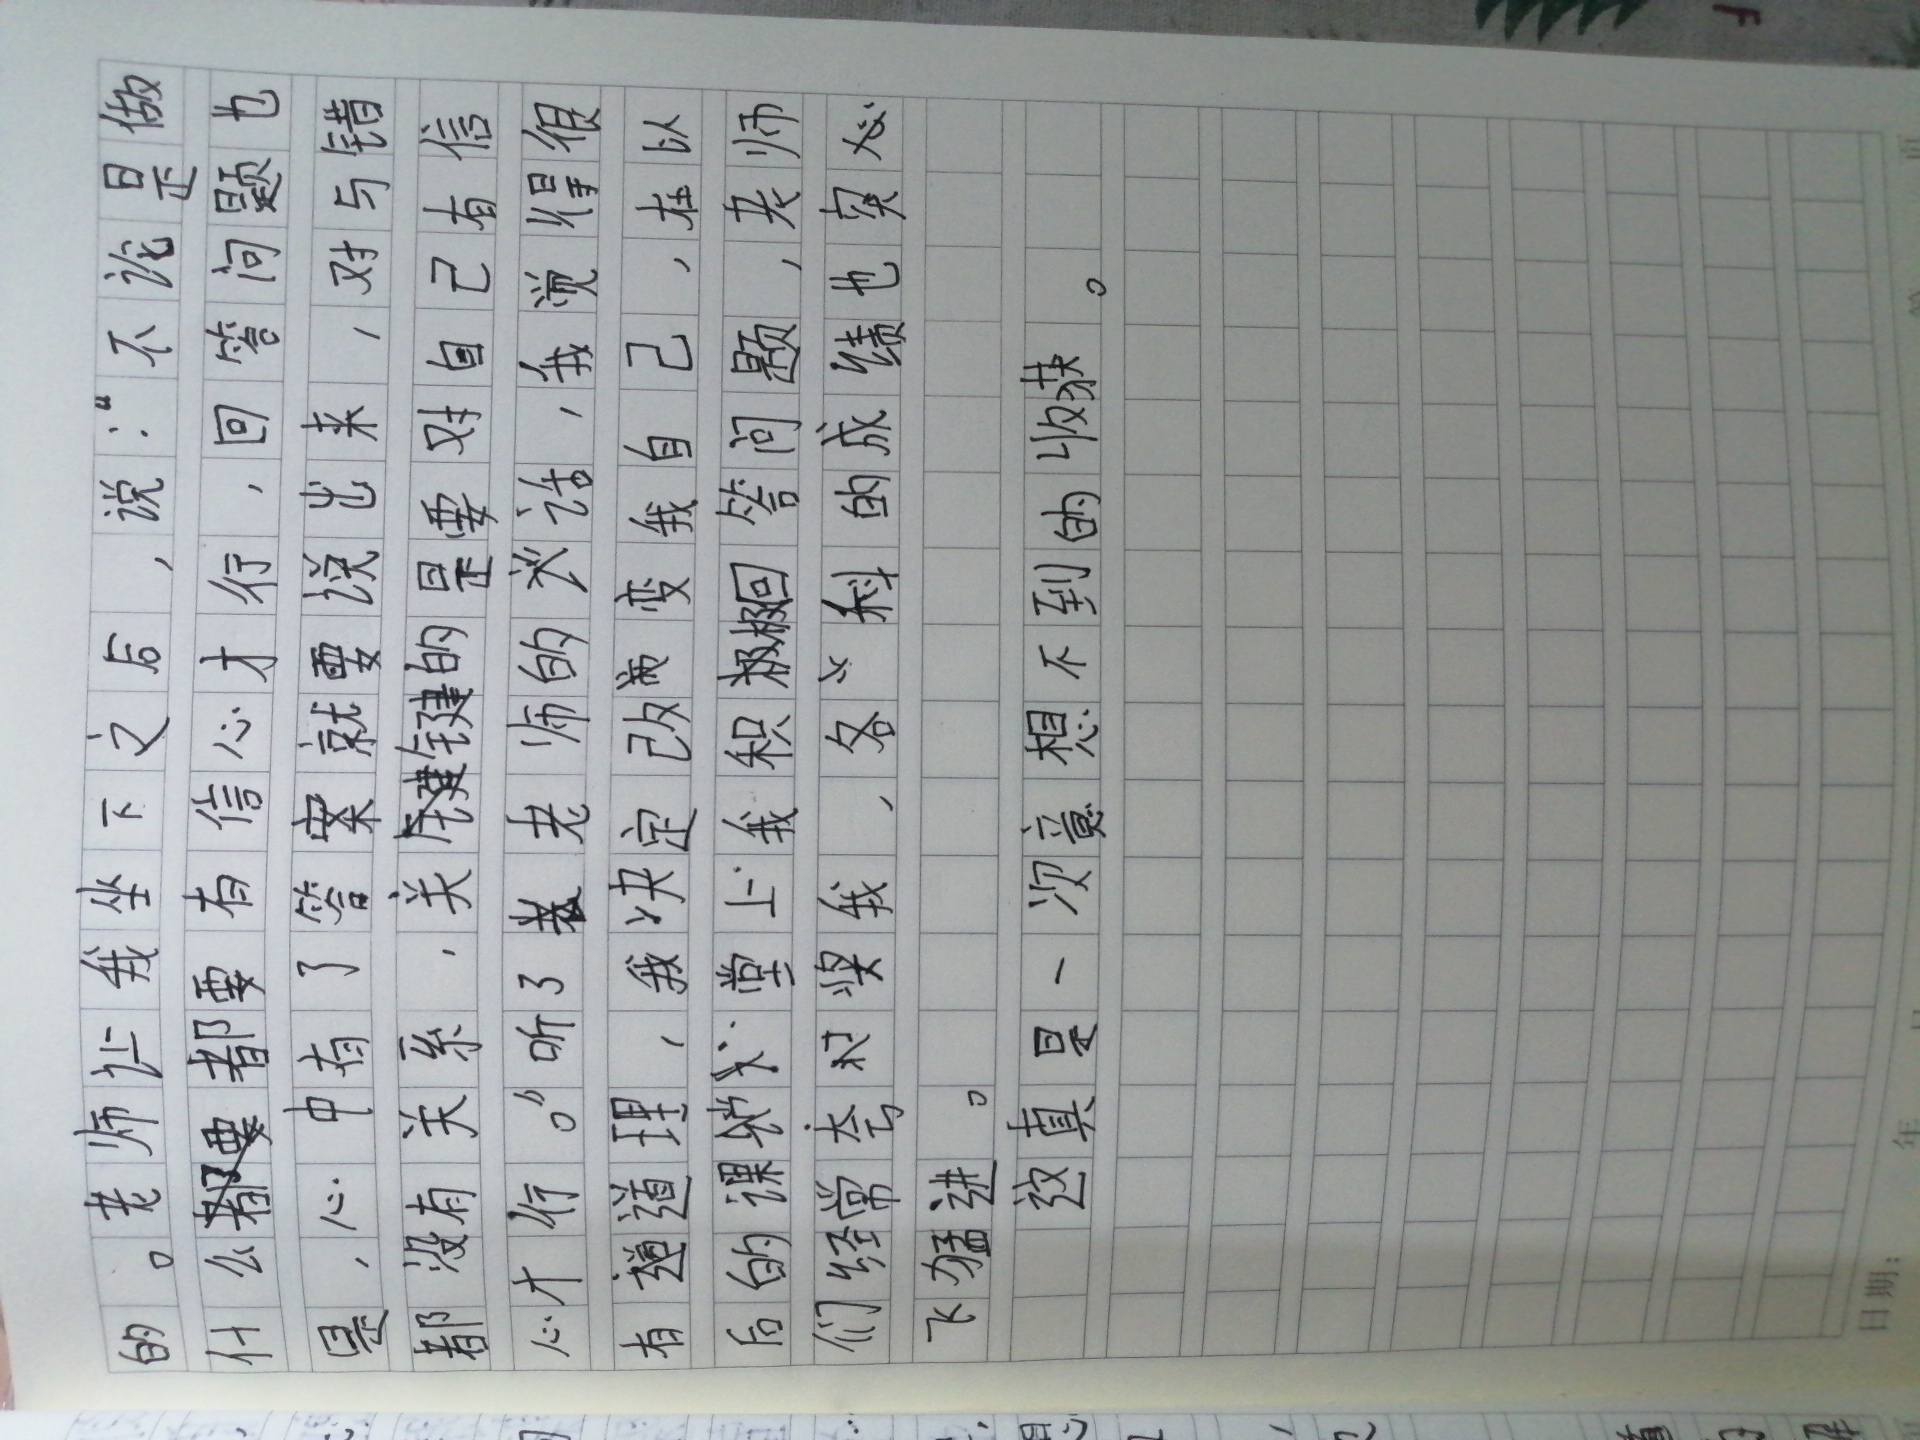 的。老师让我坐下之后，说："不论是做
什么都要有信心才行，回答问题也
是，心中有了答案就要说出来，对与错
都没有关系，关键的是要对自己有信
心才行。"听了老师的话，我觉得很
有道理，我决定改变我自己，在以
后的课堂上我积极回答问题，老师
们经常夸奖我，各科的成绩也突
飞猛进。
这真是一次意想不到的收获。
日期：
年